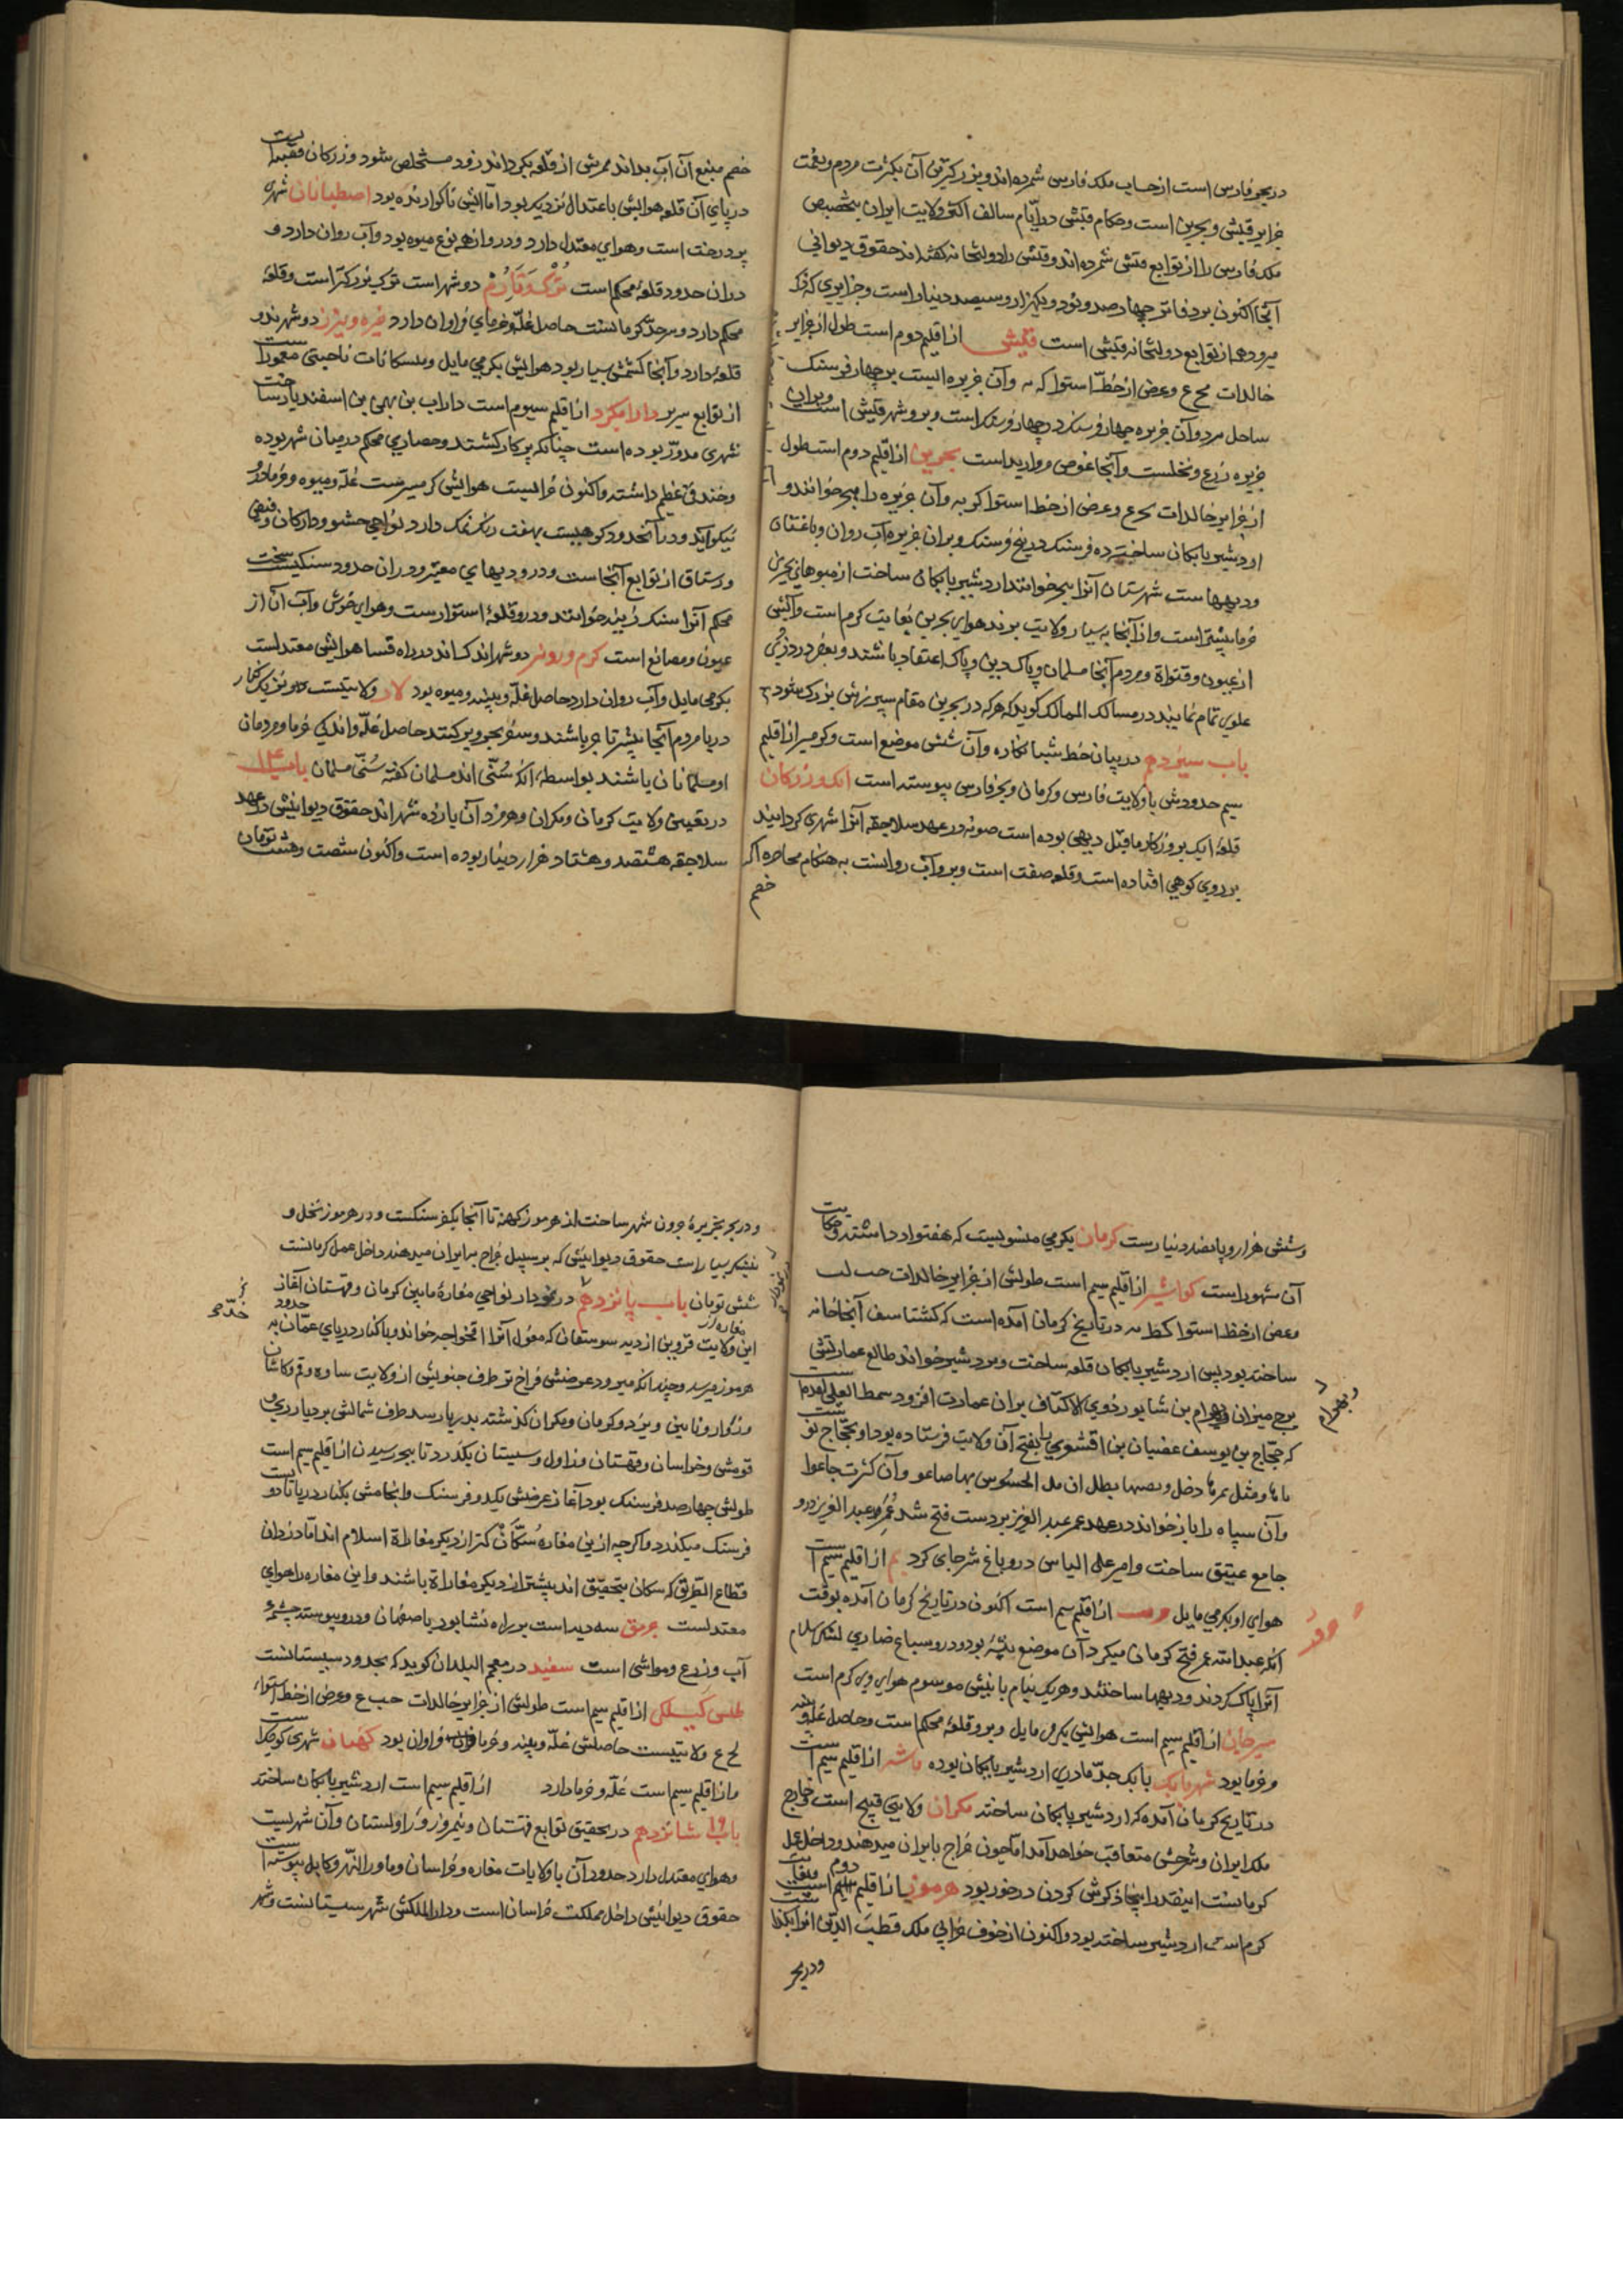 در بحر فارس است از حساب ملک فارس شمرده‌اند و بزرکترین آن بکثرت مردم و نعمت
جزایر قیش و بحرین است و حکام قیش در ایّام سالف اکثر ولایت ایران بتخصیص
ملک فارس را از توابع قیش شمرده‌اند و قیش را دولتخانه کفته‌اند حقوق دیوانی
آنجا اکنون بر دفاتر چهارصد و نود و یکهزار و سیصد دینار است و جزایری که ذکر
میرود هم از توابع دولتخانه قیش است قیش از اقلیم دوم است طول از جزایر
خالدات و عرض از خطّ استوا که و آن جزیره ایست بر چهار فرسنک
ساحل مرد و آن جزیره چهار فرسنک در چهار فرسنک است و برو شهر قیش است و بران
جزیره زرع و نخلست و آنجا غوص مروارید است بحرین از اقلیم دوم است طول
از جزایر خالدات و عرض از خط استوا و آن جزیره را هجر خوانند و
اردشیر بابکان ساخته ده فرسنک در پنج فرسنک و بران جزیره آب روان و باغستان
و دیهها ست شهرستان آنرا هجر خوانند اردشیر بابکان ساخت از میوهای بحرین
خرما بیشتر است و از آنجا بسیار ولایت برند هوای بحرین بغایت کرم است و آبش
از عیون و قنواة و مردم آنجا مسلمان و پاک دین و پاک اعتقاد باشند و بعضی در دزدی
علوی تمام نمایند در مسالک الممالک کوید که هر که در بحرین مقام سپرزش بزرک شود
باب سیزدهم در بیان خط شبانکاره و آن شش موضع است و کرمسیر از اقلیم
سیم حدودش با ولایت فارس و کرمان و بحر فارس پیوسته است ایک و زرکان
قلعه ایک بروزکار ماقبل دیهی بوده است صونه در عهد سلاجقه آنرا شهری کردانیدند
بر روی کوهی افتاده است و قلعه صفت است و برو آب روانست به هنکام محاصره اکر
خصم
خصم منبع آن آب بداند ممرش از قلعه بکرداند زود مستخلص شود و زرکان قصبه است
در پای آن قلعه هوایش باعتدال نزدیک بود امّا آبش ناکوارنده بود اصطبانان شهری
پر درخت است و هوای معتدل دارد و درو از هر نوع میوه بود و آب روان دارد و
دران حدود قلعه محکم است دو شهر است بزرکتر است و قلعه
محکم دارد و سرحدّ کرمانست حاصل غلّه و خرمای فراوان دارد خیره و نیریز دو شهرند و
قلعه دارد و آنجا کشمش بسیار بود هوایش بکرمی مایل و مسکانات ناحیتی معمور است
از توابع سریر دارابکرد از اقلیم سیوم است داراب بن بهمن بن اسفندیار ساخت
شهری مدوّر بوده است چنانکه پرکار کشند و حصاری محکم در میان شهر بوده
و خندقی عظیم داشته و اکنون خرابست هوایش کرمسیرست غلّه و میوه و خرما درو
نیکو آید و در آنحدود کوهیست بهفت رنک نمک دارد نواحی حشو و دارکان و
و رستاق از توابع آنجاست و درو دیهای معتبر و دران حدود سنکیست سخت
محکم آنرا سنک زنبه خوانند و درو قلعه استوارست و هوای خوش و آب آن از
عیون و مصانع است کرم و رونیز دو شهراند در راه فسا هوایش معتدلست
بکرمی مایل و آب روان دارد حاصل غلّه و پنبه و میوه بود لار ولایتیست نزدیک کنار
دریا مردم آنجا بیشتر تاجر باشند و سفر بحر و بر کنند حاصل غلّه و اندکی خرما و مردمان
او مسلمانان باشند بواسطه آنکه سُنّی اند مسلمان کفته سنّی مسلمان باب ۱۴
در تعیین ولایت کرمان و مکران و هرمز و آن پانزده شهراند حقوق دیوانیش در عهد
سلاجقه هشتصد و هشتاد هزار دینار بوده است و اکنون شصت و هشت تومان
و شش هزار و پانصد دینارست کرمان بکرمی منسوبست که هفتواد داشته و حکایت
آن مشهور است کواشیر از اقلیم سیم است طولش از جزایر خالدات
و عرض از خط استوا در تاریخ کرمان آمده است که کشتاسف آنجا خانه
ساخته بود پس اردشیر بابکان قلعه ساخت و بردشیر خواند طالع عمارتش
برج میزان و بهرام بن شاپور ذوی الاکتاف بران عمارت افزود سمط العلی
که حجّاج بن یوسف غضبان بن را بفتح آن ولایت فرستاده بود او بحجّاج نو
و آن سپاه را باز خواند در عهد عمر عبد العزیز بر دست فتح شد عمر عبد العزیز درو
جامع عتیق ساخت و امیر علی الیاس درو باغ شرجای کرد بم از اقلیم سیم است
هوای او بکرمی مایل از اقلیم سیم است اکنون در تاریخ کرمان آمده بوقت
آنکه عبد الله عمر فتح کرمان میکرد آن موضع بیشه بود و درو سباع ضاری لشکر اسلام
آنرا پاک کردند و دیهها ساختند و هر یک بنام بانیش موسوم هوای وی کرم است
سیرجان از اقلیم سیم است هوایش بکرمی مایل و برو قلعه محکم است و حاصل غلّه و
و خرما بود شهر بابک بابک جدّ مادری اردشیر بابکان بوده از اقلیم سیم است
در تاریخ کرمان آمده که اردشیر بابکان ساخته مکران ولایتی قبیح است خارج
ملک ایران و شرحش متعاقب خواهد آمد امّا چون خراج بایران میدهند و داخل عمل
کرمانست اینقدر اینجا ذکرش کردن درخور بود هرموز از اقلیم دوم است
کرم است اردشیر ساخته بود و اکنون از خوف حرامی ملک قطب الدّین آنرا بکذاشت
و در بحر
و در بحر بجزیره جرون شهر ساخت از هرموز کهنه تا آنجا یکفرسنکست و در هرموز نخل و
نیشکر بسیار است حقوق دیوانیش که بر سبیل خراج بایران میدهند داخل عمل کرمانست
شش تومان باب پانزدهم در نواحی مفازه مابین کرمان و قهستان آغاز
این ولایت قزوین از دیه سوستقان که مغول آنرا خوانند و تا کنار دریای عمّان به
هرموز میرسد و چندانکه میرود عرضش فراخ تو طرف جنوبیش از ولایت ساوه و قم و کاشان
و زواره و نایین و یزد و کرمان و مکران کذشته بدریا رسد طرف شمالش بر دیار ری و
قومش و خراسان و قهستان و زاول و سیستان بکذرد تا ببحر رسیدن از اقلیم سیم است
طولش چهارصد فرسنک بود آغاز عرضش یکدو فرسنک و انجامش بکنار دریا تا دویست
فرسنک میکذرد و اکرچه ازین مفازه سُکّان کمتر از دیکر مفازة اسلام اند امّا دزدان
قطّاع الطّریق که سکان بتحقیق اند بیشتر از دیکر مفازاة باشند و این مفازه را هوای
معتدلست جرمق سه دیه است بر راه نشابور باصفهان و درو پیوسته چشمه
آب و زرع و مواشی است سفید در معجم البلدان کوید که بحدود سیستانست
طبس کیلکی از اقلیم سیم است طولش از جزایر خالدات و عرض از خط استواء
ولایتیست حاصلش غلّه و پنبه و خرما فراوان بود شهری کوچک است
و از اقلیم سیم است غلّه و خرما دارد از اقلیم سیم است اردشیر بابکان ساخته
باب شانزدهم در تحقیق توابع قهستان و نیمروز و زاولستان و آن شهریست
و هوای معتدل دارد حدود آن با ولایات مفازه و خراسان و ماوراءالنّهر و کابل پیوسته است
حقوق دیوانیش داخل مملکت خراسان است و دار الملکش شهر سیستانست و